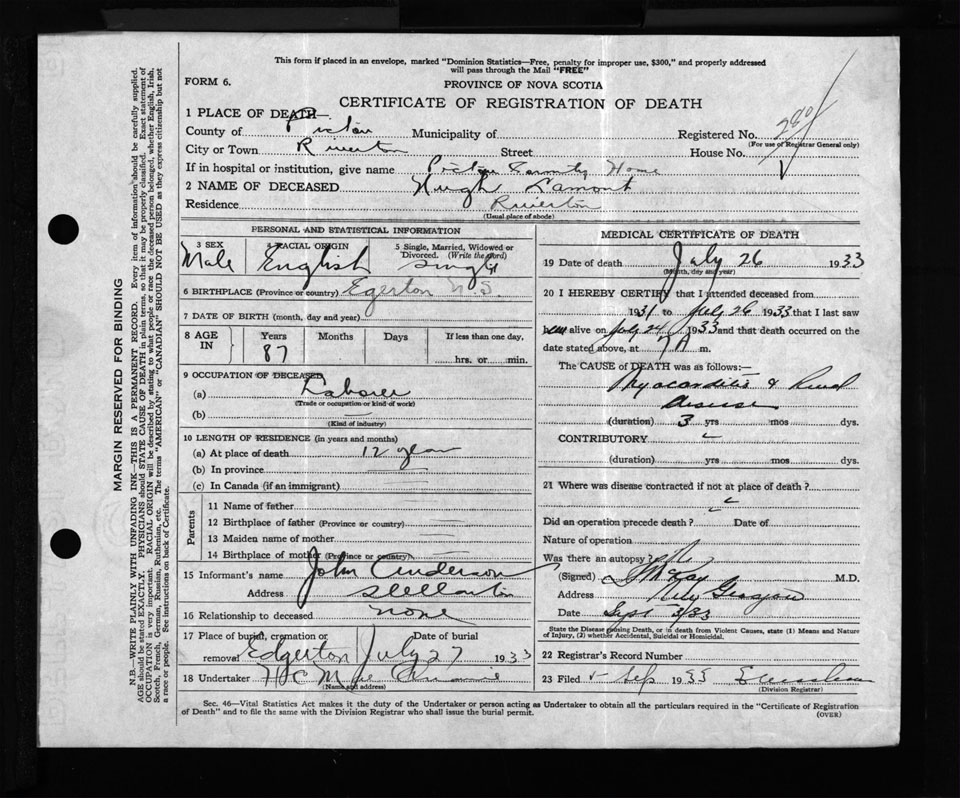 This form if placed in an envelope, marked "Dominion Statistics—Free, penalty for improper use, $300," and properly addressed
will pass through the Mail "FREE"
FORM 6.
PROVINCE OF NOVA SCOTIA
CERTIFICATE OF REGISTRATION OF DEATH
1 PLACE OF DEATH—
County of Pictou Municipality of Registered No.
(For use of Registrar General only)
City or Town Riverton Street House No.
If in hospital or institution, give name Pictou County Home
2 NAME OF DECEASED Hugh Lamont
Residence Riverton
(Usual place of abode)
PERSONAL AND STATISTICAL INFORMATION
3 SEX 4 RACIAL ORIGIN 5 Single, Married, Widowed or
Divorced. (Write the word)
Male English Single
6 BIRTHPLACE (Province or country) Egerton N.S.
7 DATE OF BIRTH (month, day and year)
8 AGE IN Years Months Days If less than one day,
87 hrs. or min.
9 OCCUPATION OF DECEASED
(a) Laborer
(Trade or occupation or kind of work)
(b)
(Kind of industry)
10 LENGTH OF RESIDENCE (in years and months)
(a) At place of death 12 years
(b) In province
(c) In Canada (if an immigrant)
Parents
11 Name of father
12 Birthplace of father (Province or country)
13 Maiden name of mother
14 Birthplace of mother (Province or country)
15 Informant's name John Anderson
Address Stellarton
16 Relationship to deceased none
17 Place of burial, cremation or Date of burial
removal Edgerton July 27 1933
18 Undertaker
(Name and address)
MEDICAL CERTIFICATE OF DEATH
19 Date of death July 26 1933
(Month, day and year)
20 I HEREBY CERTIFY that I attended deceased from
1931 to July 26 1933 that I last saw
him alive on July 24 1933 and that death occurred on the
date stated above, at 7 A m.
The CAUSE of DEATH was as follows:—
Myocarditis & Renal
disease
(duration) 3 yrs mos dys.
CONTRIBUTORY
(duration) yrs mos dys.
21 Where was disease contracted if not at place of death?
Did an operation precede death? Date of
Nature of operation
Was there an autopsy? No
(Signed) McKay M.D.
Address New Glasgow
Date Sept 3/33
State the Disease causing Death, or in death from Violent Causes, state (1) Means and Nature
of Injury, (2) whether Accidental, Suicidal or Homicidal.
22 Registrar's Record Number
23 Filed Sep 1933
(Division Registrar)
Sec. 46—Vital Statistics Act makes it the duty of the Undertaker or person acting as Undertaker to obtain all the particulars required in the "Certificate of Registration
of Death" and to file the same with the Division Registrar who shall issue the burial permit.
(OVER)
MARGIN RESERVED FOR BINDING
N.B.—WRITE PLAINLY WITH UNFADING INK—THIS IS A PERMANENT RECORD. Every item of information should be carefully supplied.
AGE should be stated EXACTLY. PHYSICIANS should STATE CAUSE OF DEATH in plain terms, so that it may be properly classified. Exact statement of
OCCUPATION is very important. RACIAL ORIGIN will be described by stating to what people or race the deceased person belonged, whether English, Irish,
Scotch, French, German, Russian, Ruthenian, etc. The terms "AMERICAN" or "CANADIAN" SHOULD NOT BE USED as they express citizenship but not
a race or people. See instructions on back of Certificate.